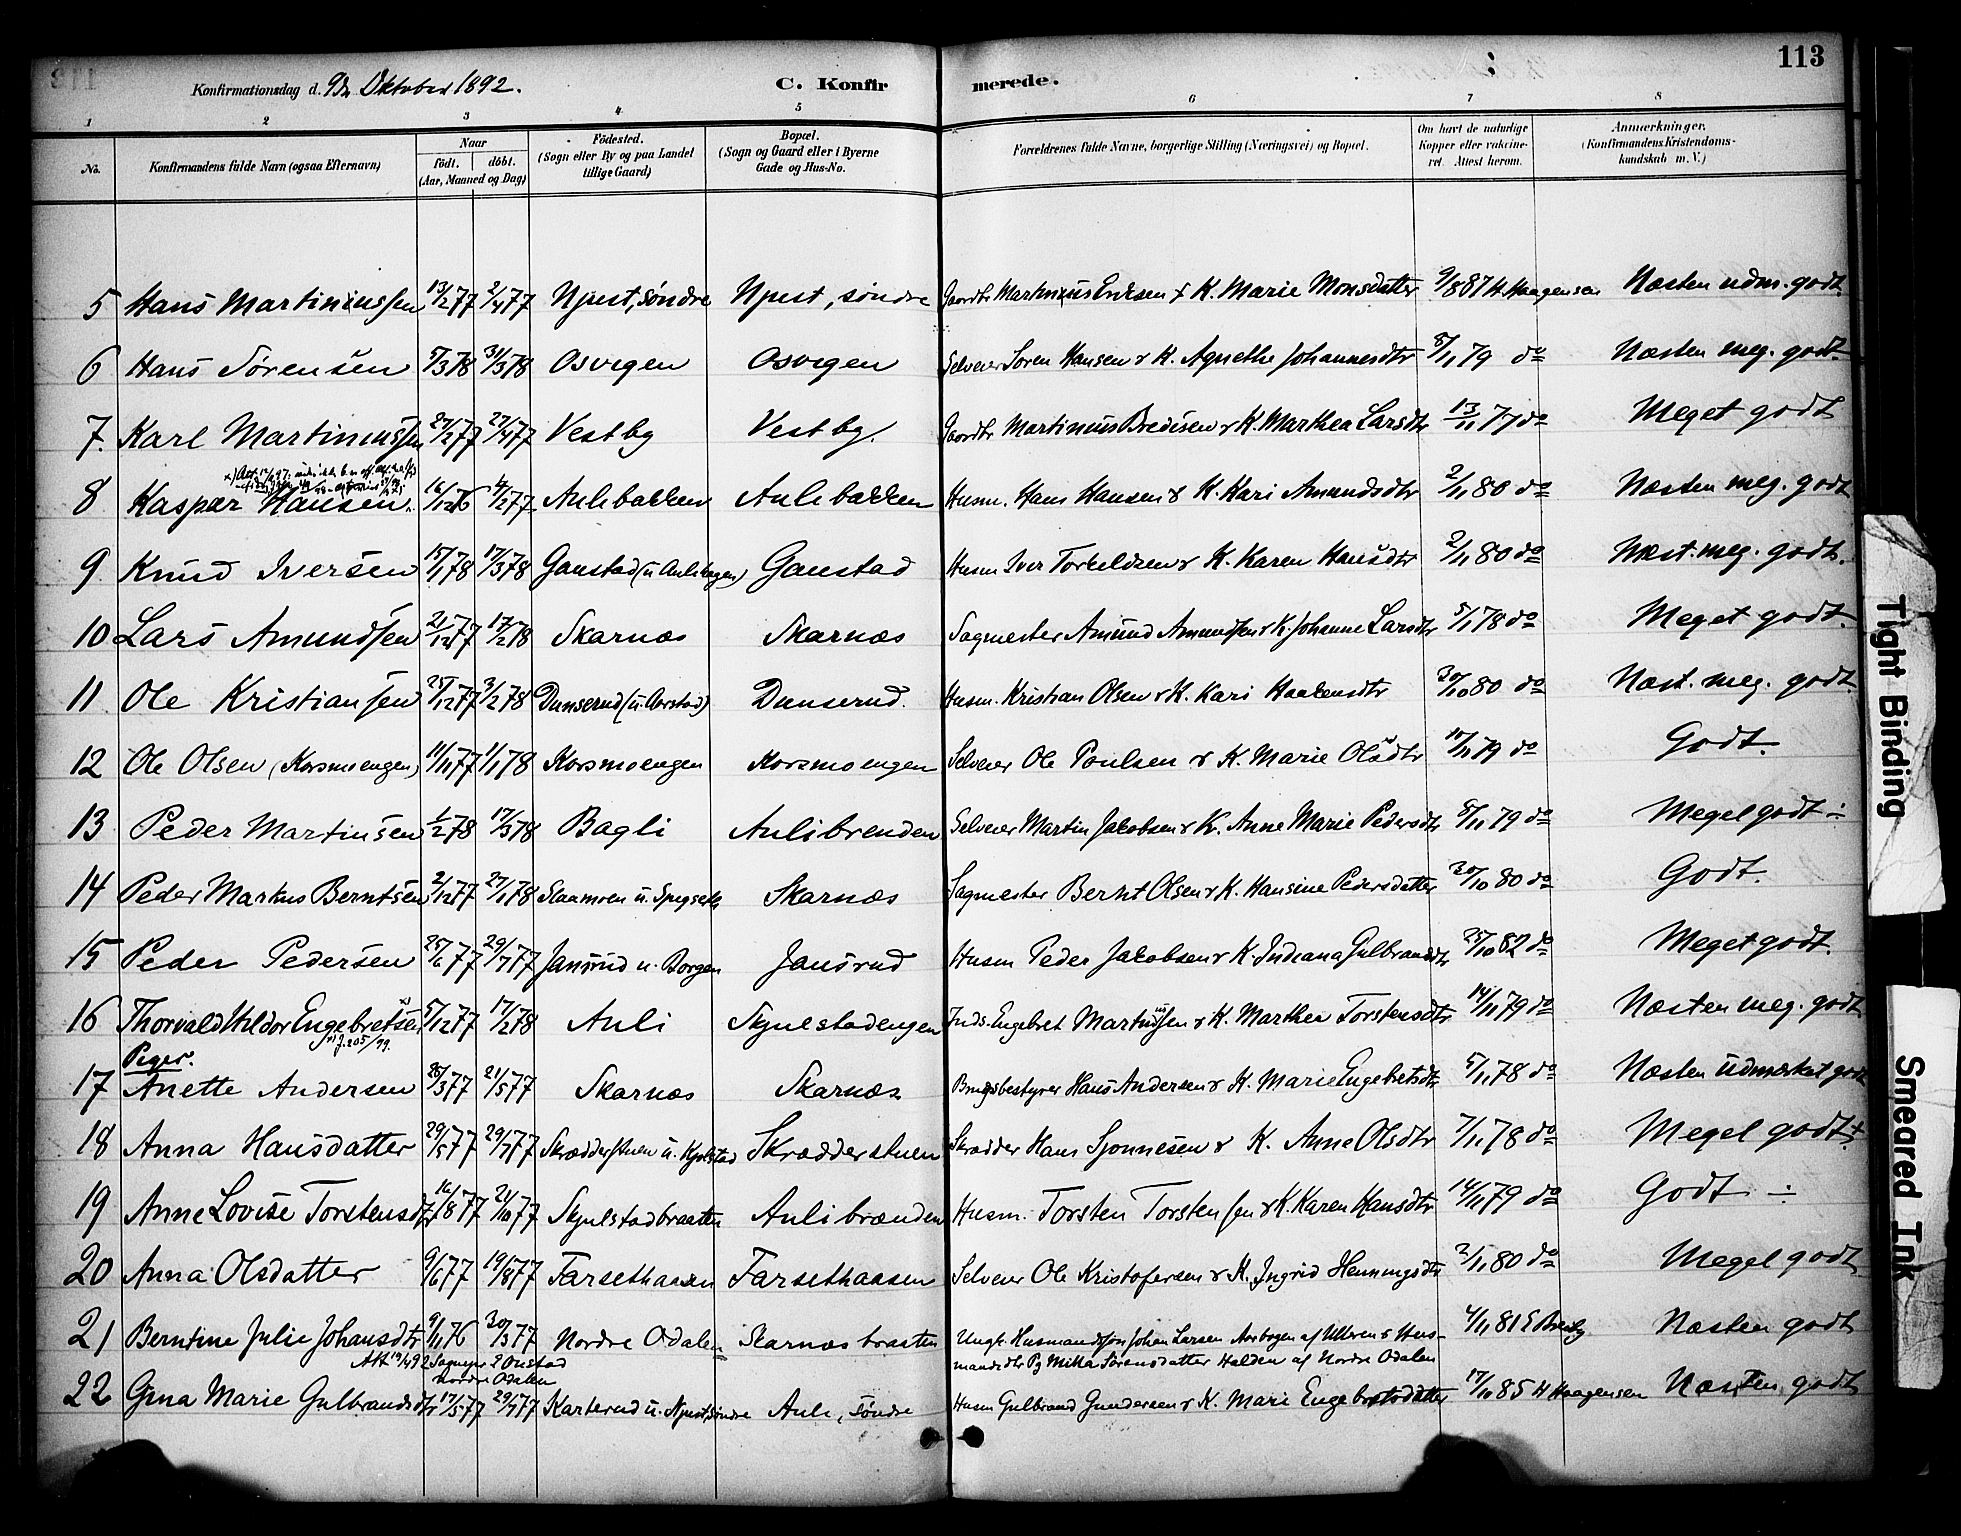 113
Konfirmationsdag d. 9de Oktober 1892. C. Konfirmerede.
1 2 3 4 5 6 7 8
No. Konfirmandens fulde Navn (ogsaa Efternavn) Naar født. døbt. (Aar, Maaned og Dag) Fødested. (Sogn eller By og paa Landet tillige Gaard) Bopæl. (Sogn og Gaard eller i Byerne Gade og Hus-No. Forældrenes fulde Navne, borgerlige Stilling (Næringsvei) og Bopæl. Om havt de naturlige Kopper eller vakcineret. Attest herom. Anmærkninger. (Konfirmandens Kristendomskundskab m. V.)
5 Hans Martiniussen 13/2 77 2/4 77 Npest, søndre Npest, søndre Gaardbr Martinius Eriksen & K. Marie Monsdatter 9/8 87 H. Haagensen Næsten udm. godt.
6 Hans Sørensen 5/3 78 31/3 78 Osvegen Osvegen Selveier Søren Hansen & K. Agnethe Johannesdtr 8/11 79 do Næsten meg. godt
7. Karl Martiniussen 27/2 77 27/4 77 Vestby Vestby. Gaardbr Martinius Bredesen & K. Marthea Larsdtr 13/11 77 do Meget godt
8 Kaspar Hansen. 16/12 76 4/2 77 Aulibakken Aulibakken Husm. Hans Hansen & K. Kari Amundsdtr 2/11 80 do Næsten meg. godt
9 Knud Iversen 15/1 78 17/3 78 Gaustad (u Aulihagen) Gaustad Husm Iver Torkeldsen & K. Karen Hansdtr 2/11 80 do Næst. meg. godt.
10 Lars Amundsen 21/12 77 17/2 78 Skarnæs Skarnæs Sagmester Amund Amundsen & K. Johanne Larsdtr 5/1 78 do Meget godt.
11 Ole Kristiansen 25/12 77 3/2 78 Dunserud (u. Aorstad) Dunserud. Husm. Kristian Olsen & K. Kari Haakensdtr 30/10 80 do Næst. meg. godt
12 Ole Olsen (Korsmoengen) 11/11 77 1/1 78 Korsmoengen Korsmoengen Selveier Ole Poulsen & K. Marie Olsdtr 10/11 79 do Godt.
13 Peder Martinsen 1/2 78 17/3 78 Bagli Aulibrenden Selveier Martin Jakobsen & K. Anne Marie Pedersdtr 8/11 79 do Meget godt ÷
14 Peder Markus Berntsen 2/12 77 27/1 78 Slaamoen u. Spigseth Skarnæs Sagmester Bernt Olsen & K. Hansine Pedersdatter 20/10 80 do Godt.
15 Peder Pedersen 25/6 77 29/7 77 Jansrud u. Borgen Jansrud Husm Peder Jakobsen & K. Indiana Gulbrandsdtr 25/10 82 do Meget godt.
16 Thorvald Hildor Engebretsen 5/12 77 17/2 78 Auli Skjulstadengen Inds. Engebret Martinussen & K. Marthea Torstensdtr 14/11 79 do Næsten meg. godt
J. 205/99.
Piger.
17 Anette Andersen 26/3 77 21/5 77 Skarnæs Skarnæs Brugsbestyrer Hans Andersen & K. Marie Engebretsdtr 5/11 78 do Næsten udmærket godt
18 Anna Hansdatter 29/5 77 29/7 77 Skrædderstuen u. Kjølstad Skrædderstuen Skrædder Hans Sjonnesen & K. Anne Olsdtr 7/11 78 do Meget godt +
19 Anne Lovise Torstensdtr 16/8 77 21/10 77 Skjulstadbraatten Aulibrænden Husm. Torsten Torstensen & K. Karen Hansdtr 14/11 79 do Godt ÷
20 Anna Olsdatter 9/6 77 19/8 77 Farsethaasen Farsethaasen Selveier Ole Kristofersen & K. Ingrid Henningsdtr 2/11 80 do Meget godt
21 Berntine Julie Johansdtr 9/11 76 30/3 77 Nordre Odalen Skarnæsbraaten Ungk. Husmandssøn Johan Larsen Aorbogen af Ullern & Husmandsdtr Pg Mitha Sørensdatter Halden af Nordre Odalen 4/11 81 E Bredby Næsten godt
Att 19/4 92 Sognepr Onstad Nordre Odalen
22 Gina Marie Gulbrandsdtr 17/5 77 29/7 77 Karterud u. Npest, søndre Auli, søndre Husm Gulbrand Gundersen & K. Mari Engebretsdatter 17/10 85 H Haagensen Næsten godt
Tight Binding
Smeared Ink